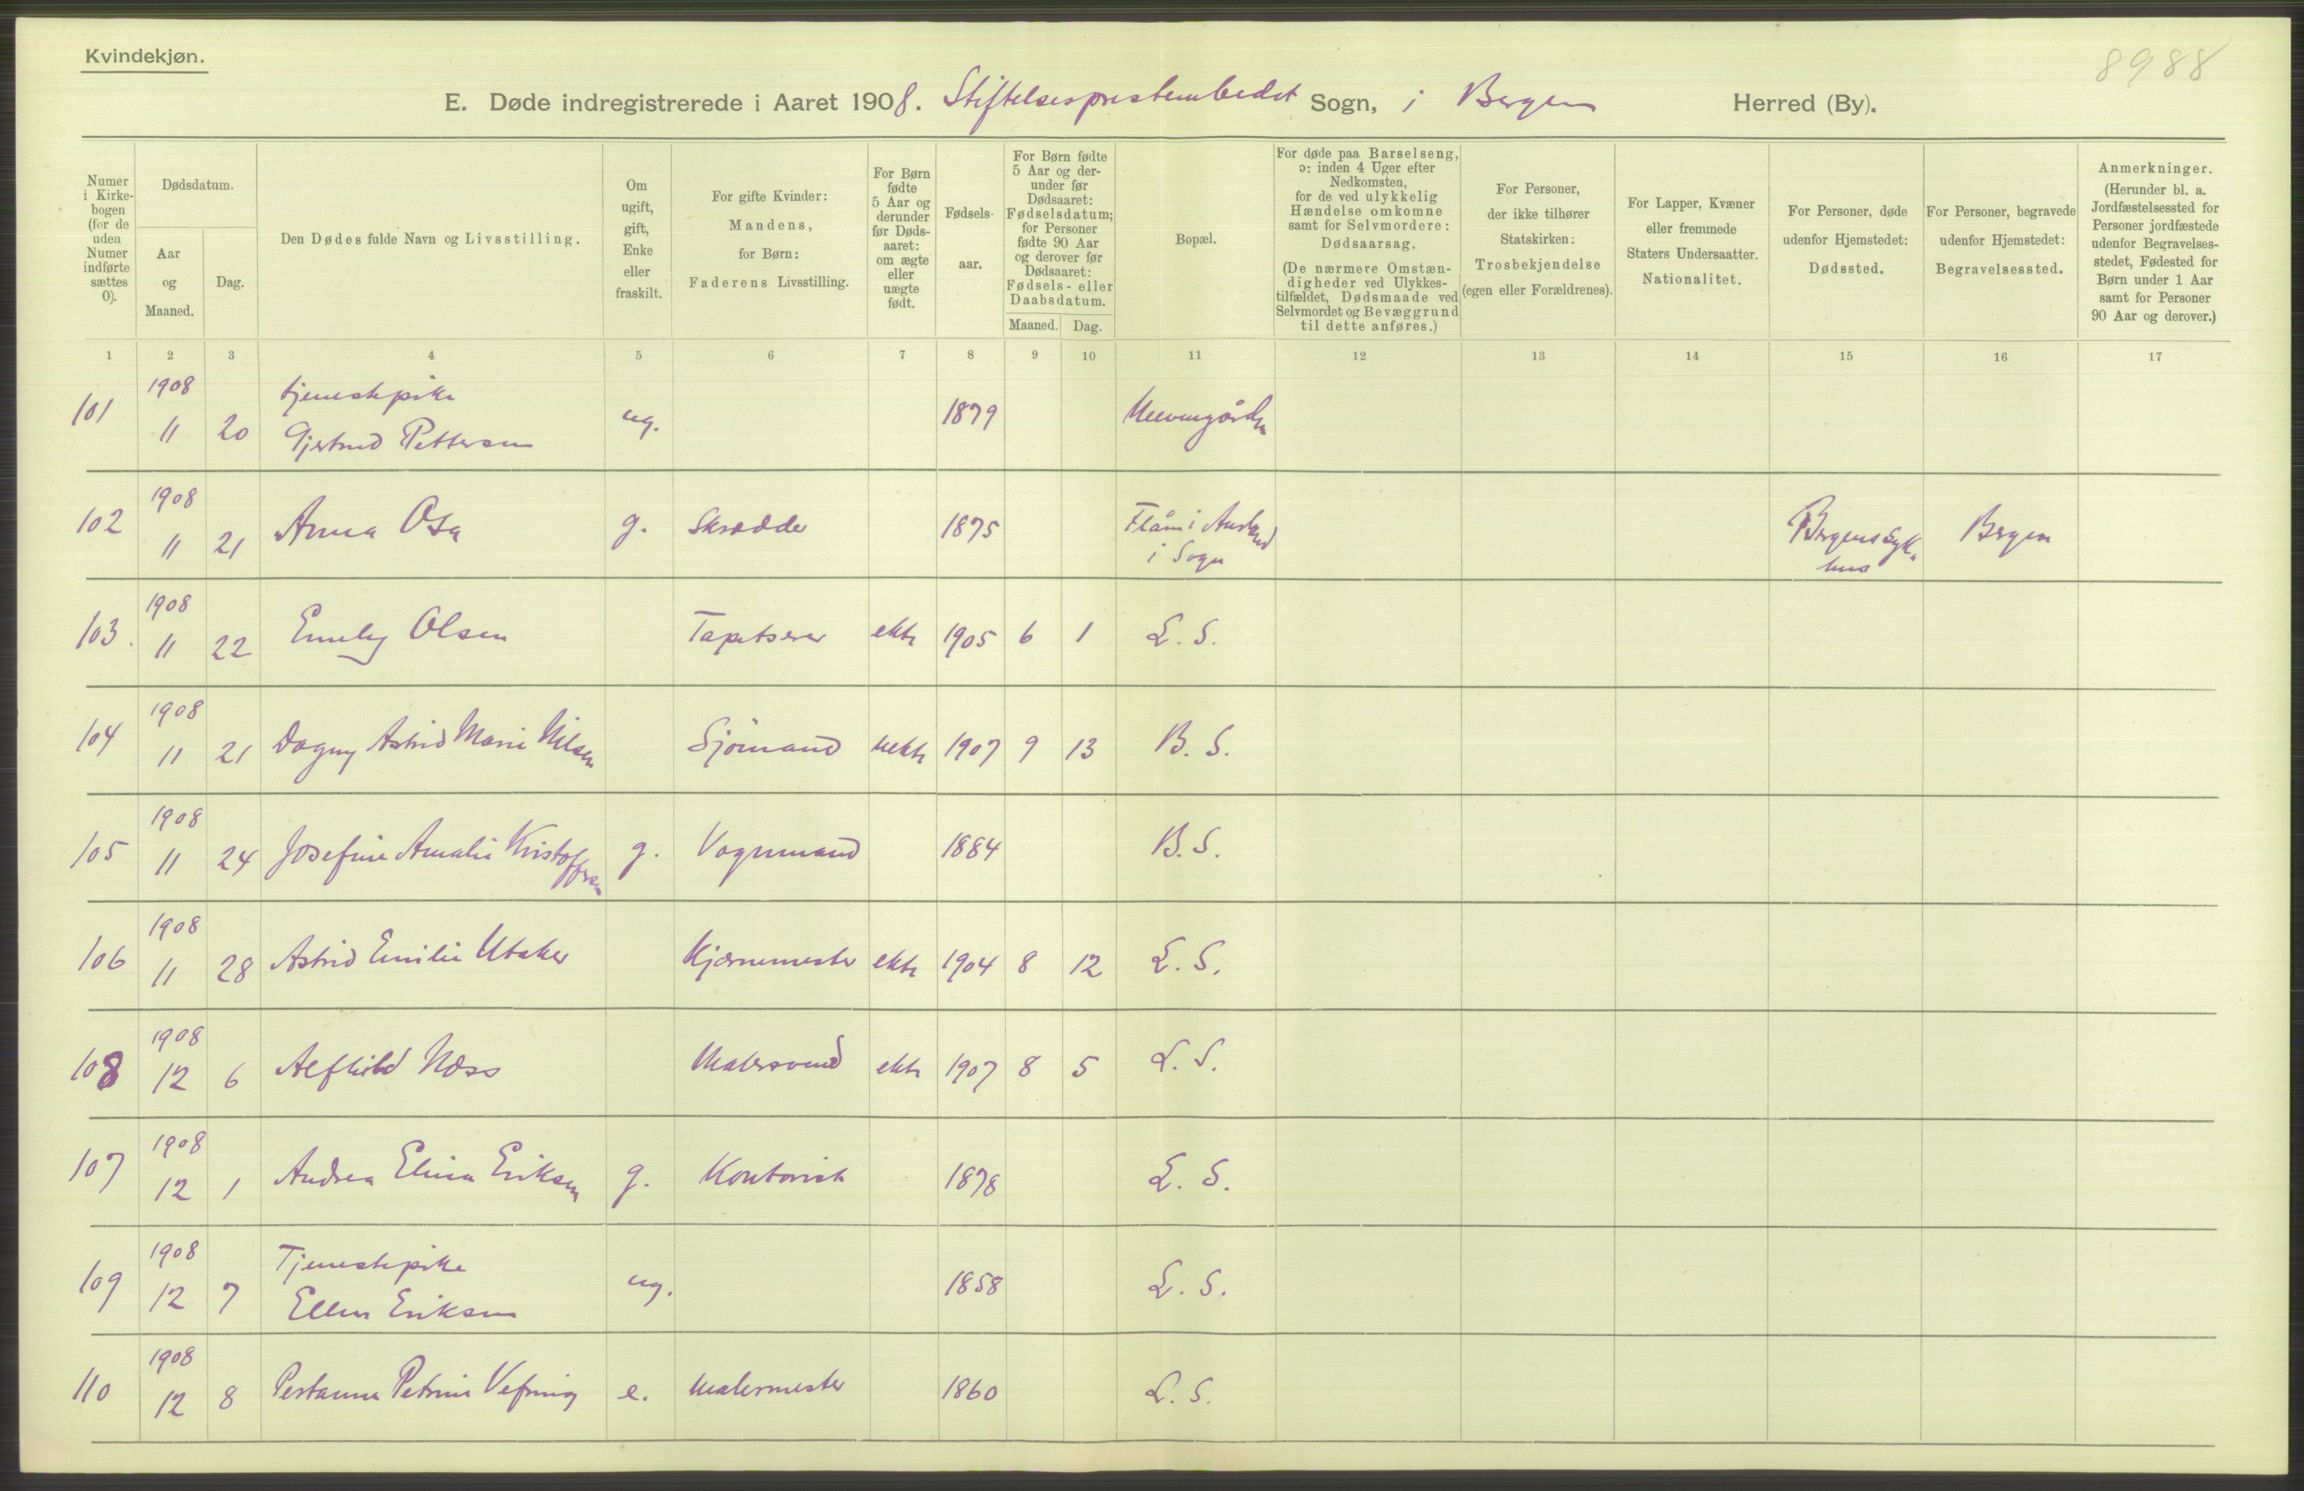 Kvindekjøn.
8988
E. Døde indregistrerede i Aaret 1908. Stiftelsesprestembedet Sogn, i Bergen Herred (By).
Numer i Kirkebogen (for de uden Numer indførte sættes 0).
Dødsdatum.
Aar og Maaned.
Dag.
Den Dødes fulde Navn og Livsstilling.
Om ugift, gift, Enke eller fraskilt.
For gifte Kvinder: Mandens, for Børn: Faderens Livsstilling.
For Børn fødte 5 Aar og derunder før Dødsaaret: om ægte eller uægte født.
Fødselsaar.
For Børn fødte 5 Aar og derunder før Dødsaaret: Fødselsdatum; for Personer fødte 90 Aar og derover før Dødsaaret: Fødsels- eller Daabsdatum.
Maaned. Dag.
Bopæl.
For døde paa Barselseng, ɔ: inden 4 Uger efter Nedkomsten, for de ved ulykkelig Hændelse omkomne samt for Selvmordere: Dødsaarsag.
(De nærmere Omstændigheder ved Ulykkestilfældet, Dødsmaade ved Selvmordet og Bevæggrund til dette anføres.)
For Personer, der ikke tilhører Statskirken: Trosbekjendelse (egen eller Forældrenes).
For Lapper, Kvæner eller fremmede Staters Undersaatter. Nationalitet.
For Personer, døde udenfor Hjemstedet: Dødssted.
For Personer, begravede udenfor Hjemstedet: Begravelsessted.
Anmerkninger.
(Herunder bl. a. Jordfæstelsessted for Personer jordfæstede udenfor Begravelsesstedet, Fødested for Børn under 1 Aar samt for Personer 90 Aar og derover.)
1 2 3 4 5 6 7 8 9 10 11 12 13 14 15 16 17
101 1908 11 20 tjenestepike Gjertrud Pettersen ug. 1879
102 1908 11 21 Anna Osa g. Skrædder 1875 Flåm i Aurland i Sogn Bergens Sykehus Bergen
103. 1908 11 22 Emely Olsen Tapetserer ekte 1905 6 1 L. S.
104 1908 11 21 Dagny Astrid Marie Nilsen Sjömand uekte 1907 9 13 B. S.
105 1908 11 24 Josefine Amalie Kristoffersen g. Vognmand 1884 B. S.
106 1908 11 28 Astrid Emilie Utaker Kjærnemester ekte 1904 8 12 L. S.
108 1908 12 6 Alfhild Næss Malersvend ekte 1907 8 5 L. S.
107 1908 12 1 Andrea Elina Eriksen g. Kontorist 1878 L. S.
109 1908 12 7 Tjenestepike Ellen Eriksen ug. 1858 L. S.
110 1908 12 8 Petrine e. Malermester 1860 L. S.